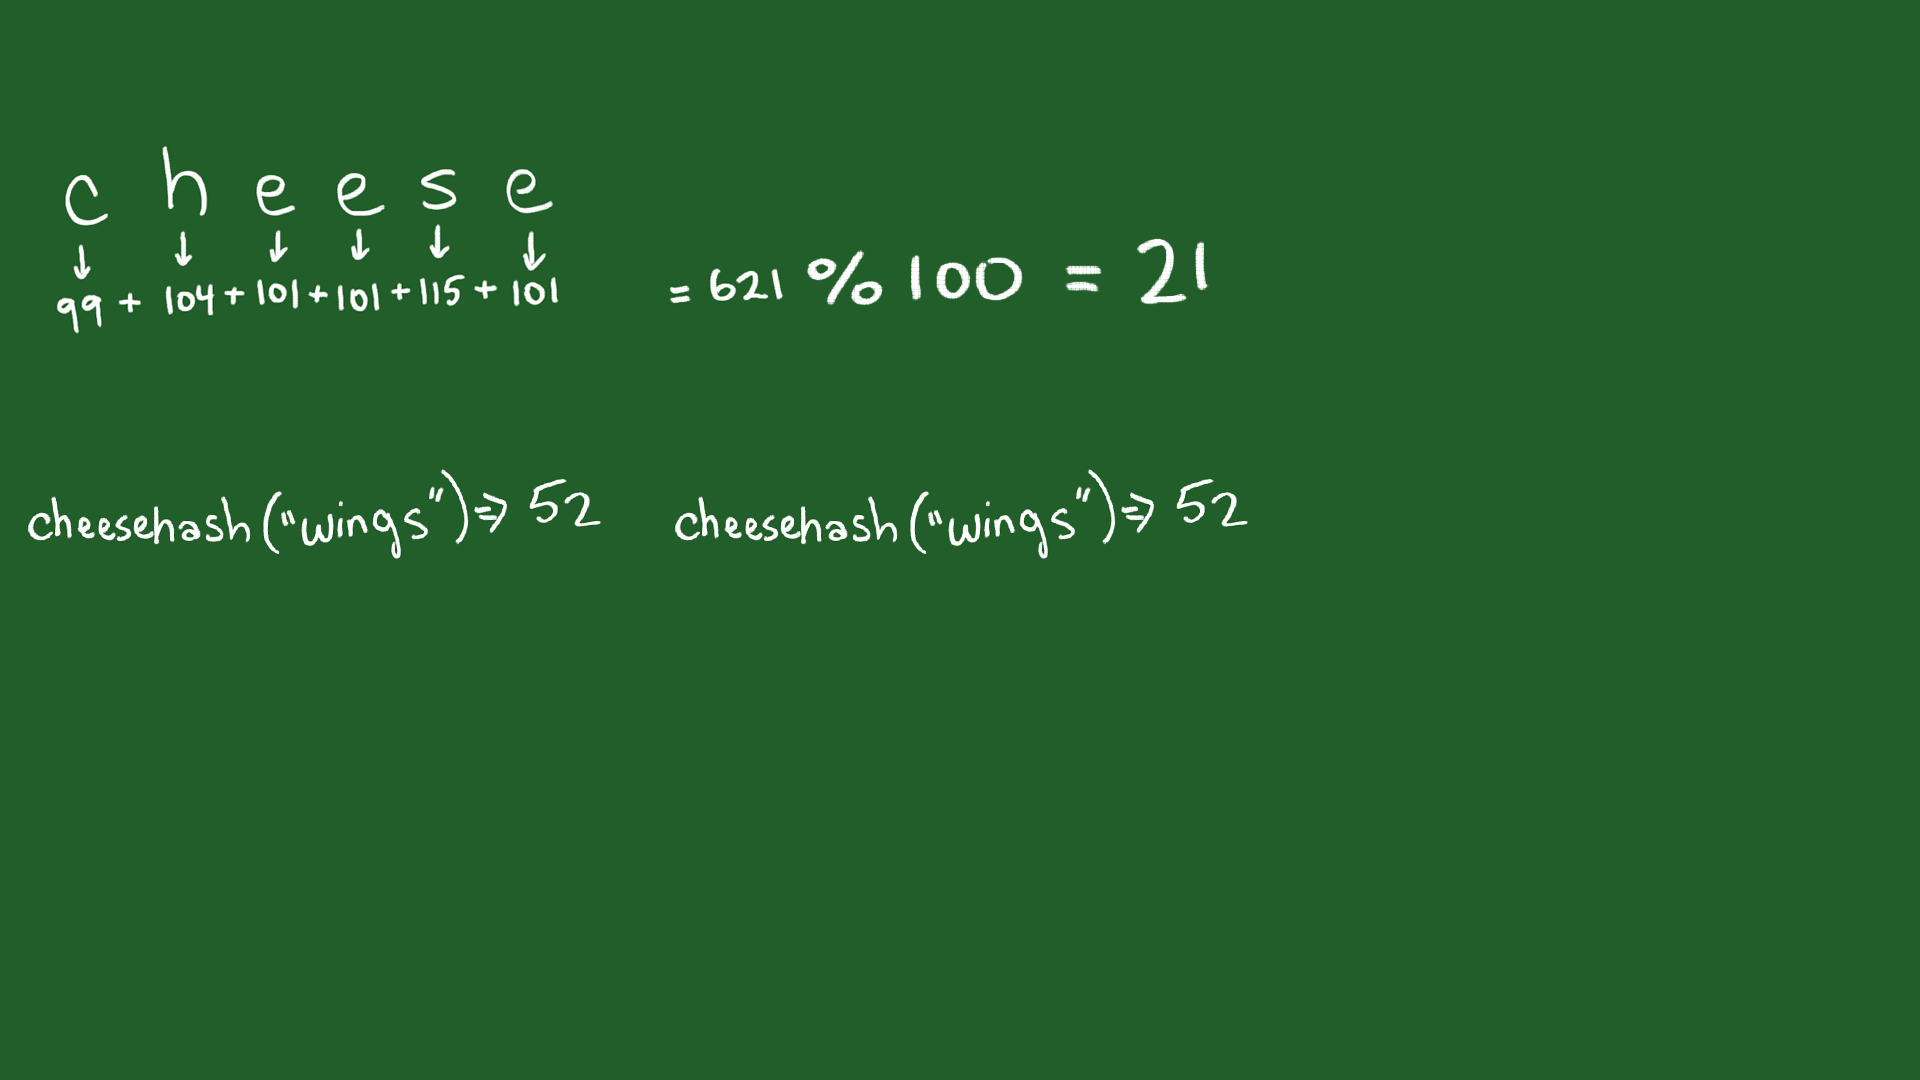 c h e e s e
↓ ↓ ↓ ↓ ↓ ↓
99 + 104 + 101 + 101 + 115 + 101 = 621 % 100 = 21
cheesehash("wings") => 52 cheesehash("wings") => 52